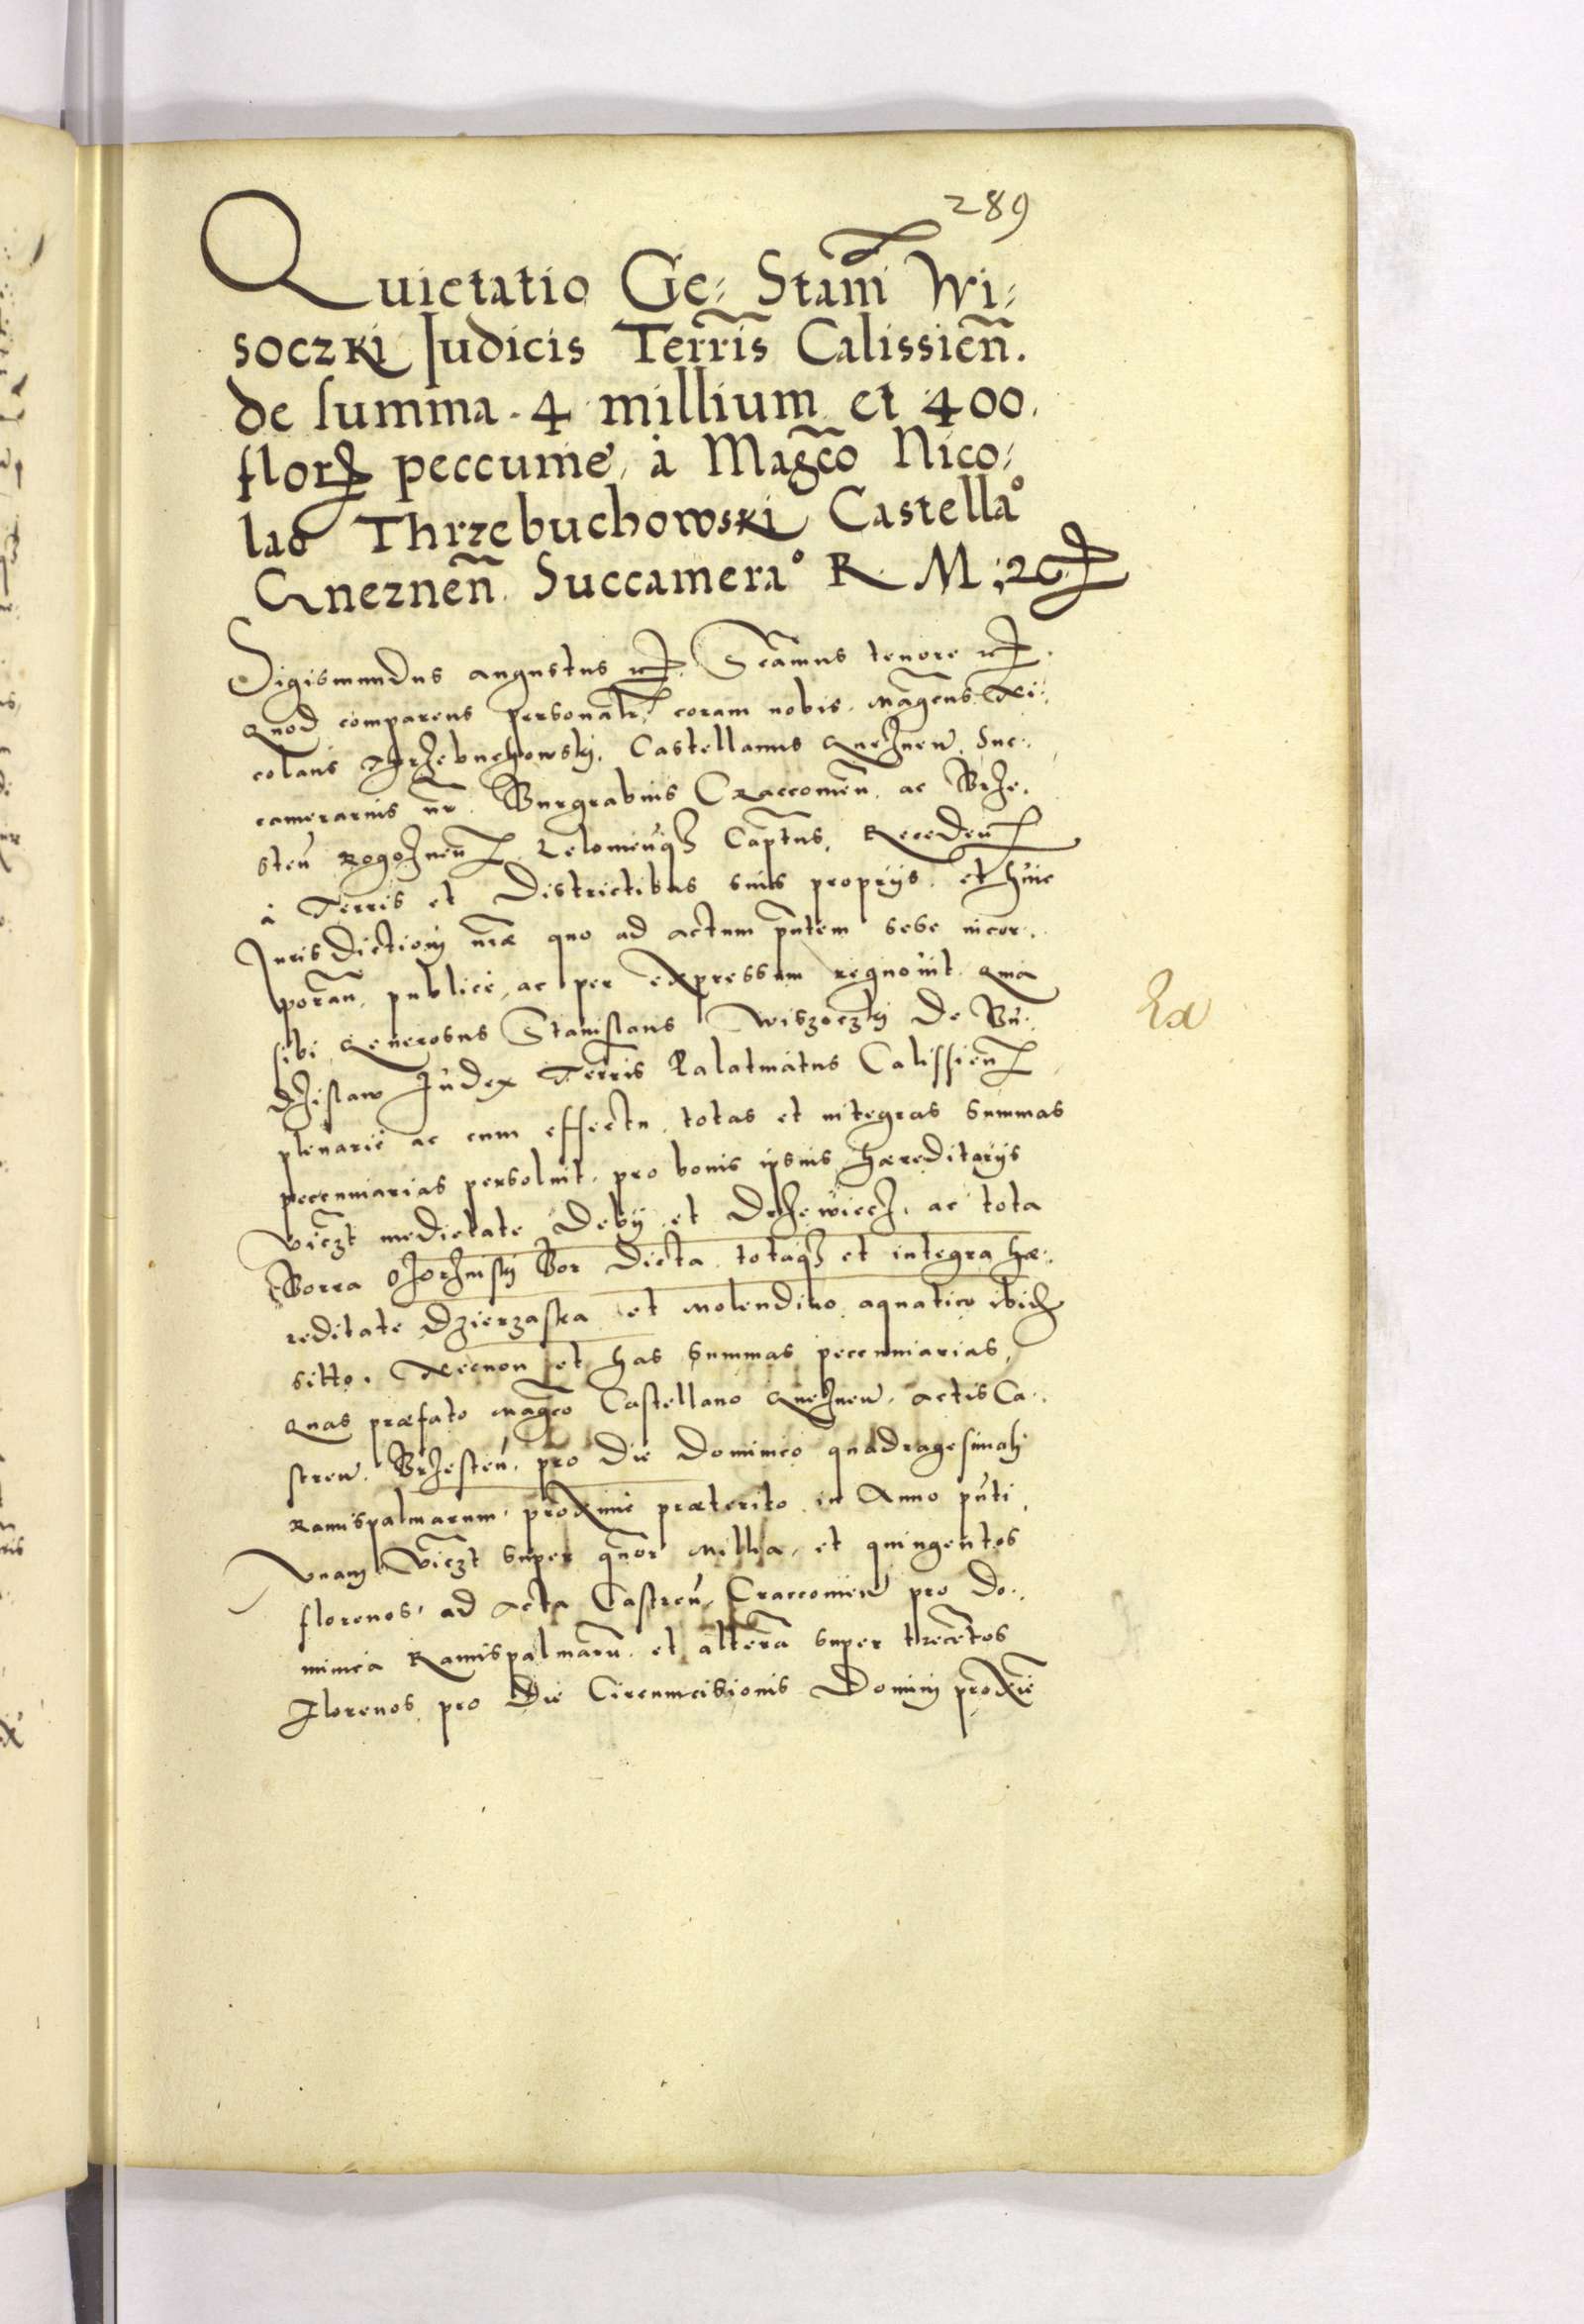 289
Quietatio Ge: Stani Wi:
soczki Judicis Terris Calissień.
de summa. 4 millium et 400.
flor peccunie, à Magco Nico:
lao Thrzebuchowski Castella°
Gneznen. Succamera° R. M: 2c
Sigismundus augustus etc. Scamus tenore etc.
Quod comparens personalr. coram nobis. Magcus Ni:
colaus Thrzebuchowskj, Castellanus Gneznen. Suc:
camerarius nr. Burgrabius Craccouień. ac Brze.
steń Rogoznen. Captus. Receden
à Terris et Districtibus suis proprijs. et huic
Jurisdictionj nræ quo ad actum pntem sese incor:
poran, publicè, ac per expressum regnouit. Quia
sibi Generosus Stanislaus Wiszoczkj De Bu:
dzislaw Judex Terris Palatinatus Calissień
plenariè ac cum effectu. totas et integras summas
peccuniarias persoluit. pro bonis ipsius hæreditarijs
viczt medietate Deby et Drzewiecz, ac tota
Borra Bor Dicta. totaqz et integra hæ:
reditate Dzierzaska et Molendino aquatico ibid
sitto. Necnon et has summas peccuniarias,
Quas præfato Magco Castellano Gneznen. actis Ca:
stren. Brzesteń. pro die Dominico quadragesimali
Ramispalmarum. proxime præterito in Anno pnti,
vnam viczt super qtuor Millia, et quingentos
florenos, ad acta Castreń. Craccouien pro Do:
minica Ramispalmaru. et altera super trecetos
florenos pro die Circumcisionis Dominj proxie